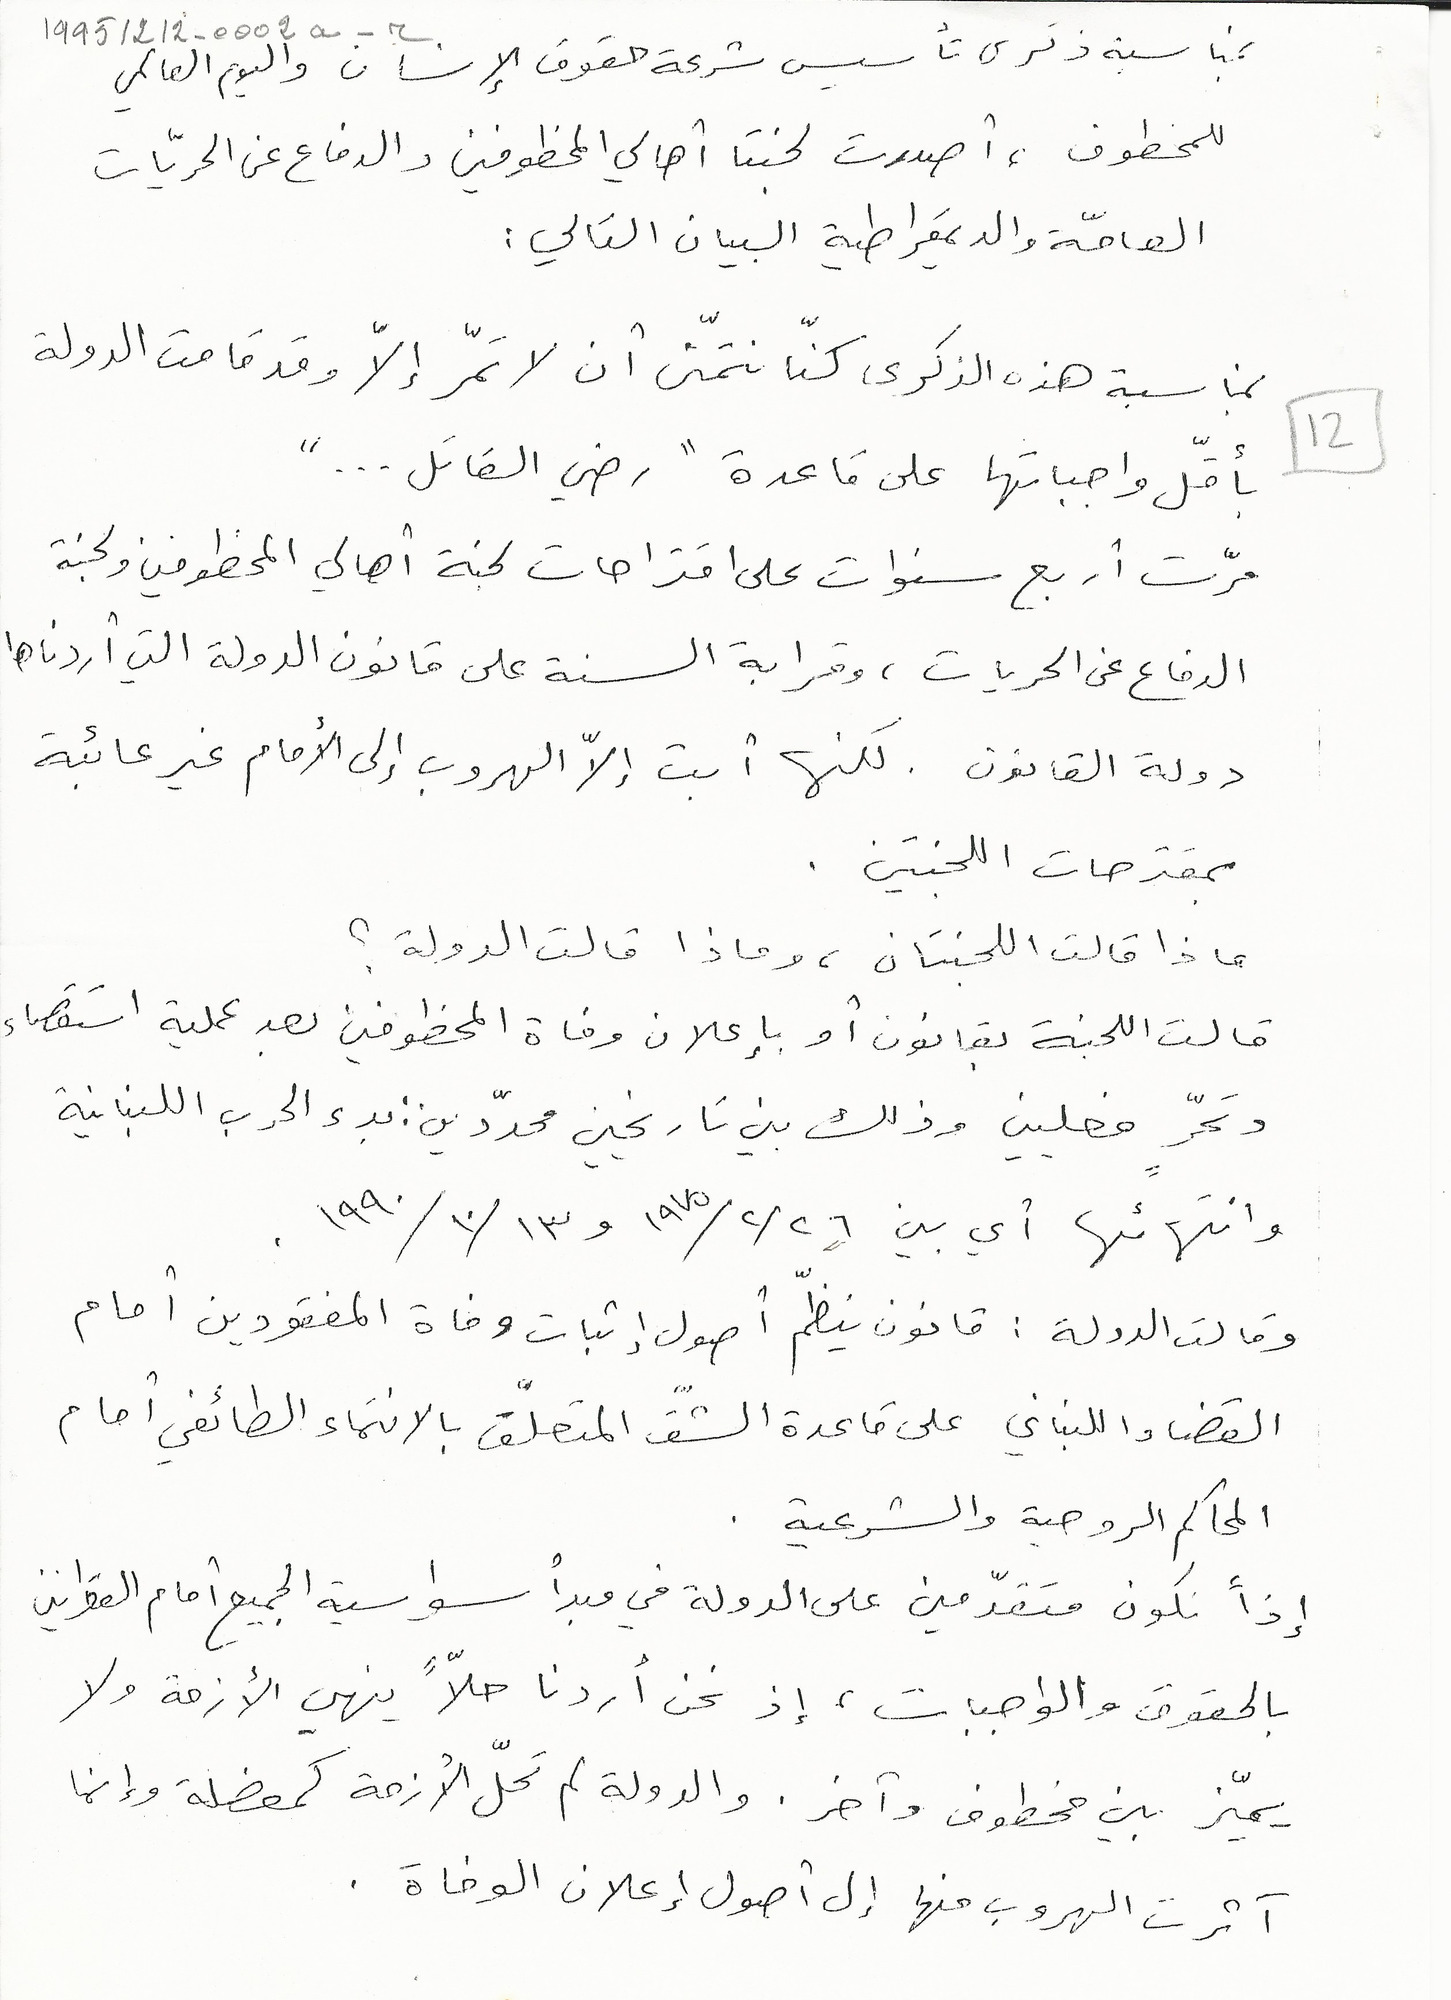 1995/2/2-0002a-r
بمناسبة ذكرى تأسيس شرعة حقوق الإنسان واليوم العالمي
للمخطوف ، أصدرت لجنتا أهالي المخطوفين والدفاع عن الحريّات
العامّة والديمقراطية البيان التالي :
بمناسبة هذه الذكرى كنّا نتمنّى أن لا تمّر إلاّ وقد قامت الدولة
12
بأقلّ واجباتها على قاعدة " رضي القاتل ... "
مرّت أربع سنوات على اقتراحات لجنة أهالي المخطوفين ولجنة
الدفاع عن الحريات ، وقرابة السنة على قانون الدولة التي أردناها
دولة القانون . لكنها أبت إلاّ الهروب إلى الأمام غير عائبة
بمقترحات اللجنتين .
ماذا قالت اللجنتان ، وماذا قالت الدولة ؟
قالت اللجنة بقانون أو بإعلان وفاة المخطوفين بعد عملية استقصاء
وتحرٍّ فعليين وذلك بين تاريخين محدّدين : بدء الحرب اللبنانية
وانتهائها أي بين ٢٦/٢/١٩٧٥ و ١٣/١٠/١٩٩٠ .
وقالت الدولة : قانون ينظّم أصول إثبات وفاة المفقودين أمام
القضاء اللبناني على قاعدة الشقّ المتعلّق بالانتماء الطائفي أمام
المحاكم الروحية والشرعية .
إذاً نكون متقدّمين على الدولة في مبدأ سواسية الجميع أمام القوانين
بالحقوق والواجبات ، إذ نحن أردنا حلاًّ ينهي الأزمة ولا
يميّز بين مخطوف وآخر . والدولة لم تحلّ الأزمة كمعضلة وإنما
آثرت الهروب منها إلى أصول إعلان الوفاة .